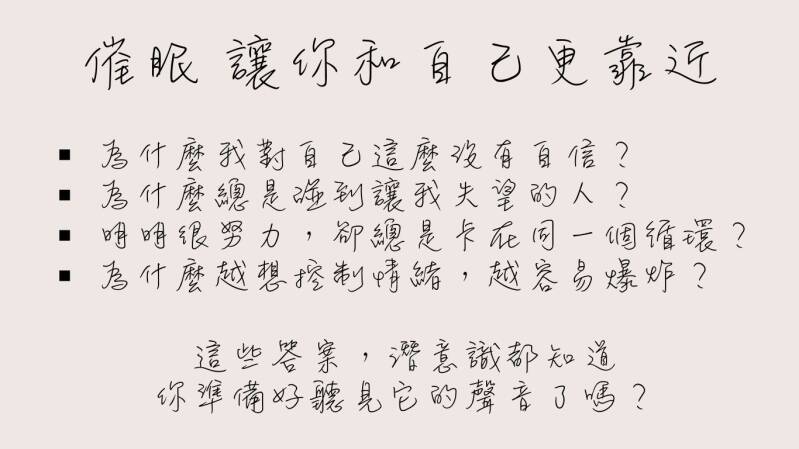 催眠 讓你和自己更靠近
▪ 為什麼我對自己這麼沒有自信？
▪ 為什麼總是碰到讓我失望的人？
▪ 明明很努力，卻總是卡在同一個循環？
▪ 為什麼越想控制情緒，越容易爆炸？
這些答案，潛意識都知道
你準備好聽見它的聲音了嗎？